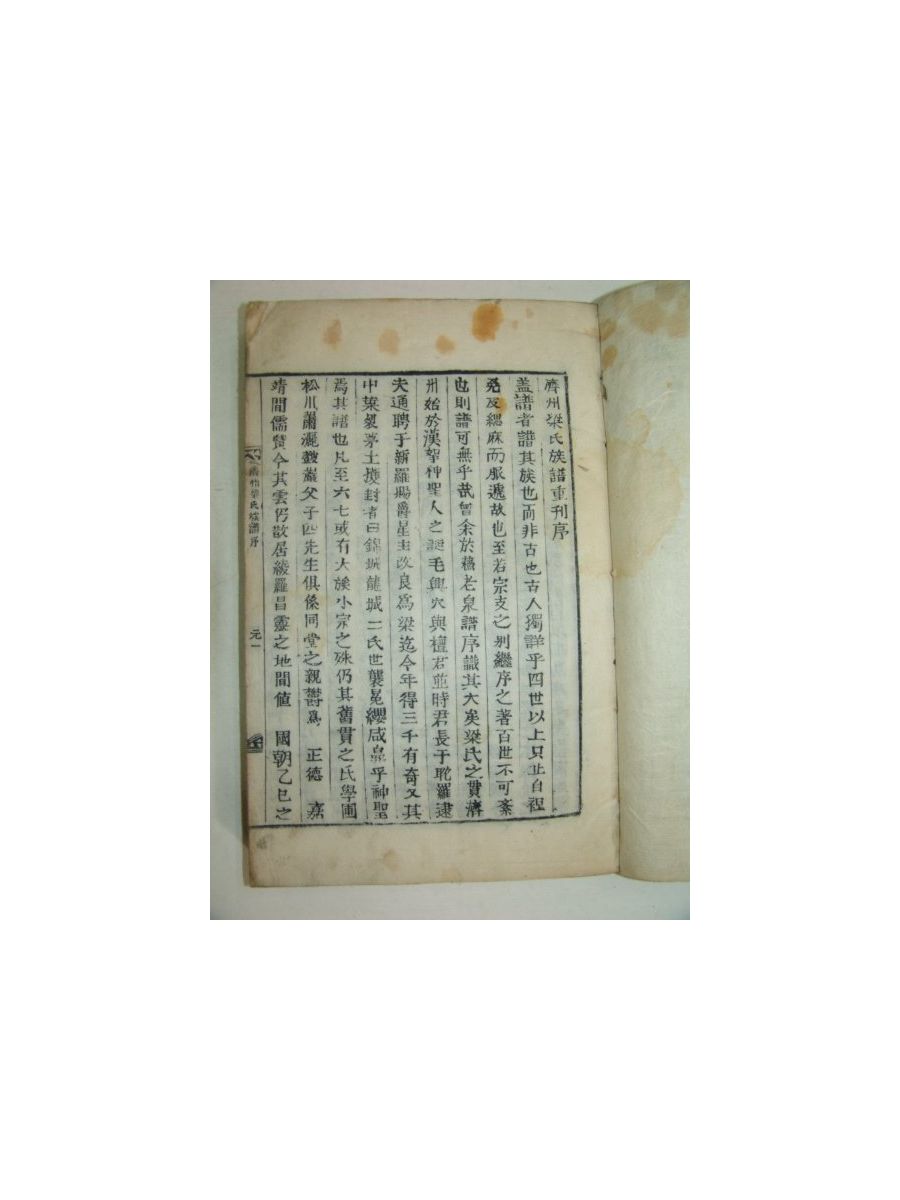 濟州梁氏族譜重刊序
盖譜者譜其族也而非古也古人獨詳乎四世以上只止自裎
免及緦麻而服遞故也至若宗支之别繼序之著百世不可紊
也則譜可無乎哉曾余於蘓老泉譜序識其大矣梁氏之貫濟
州始於漢挐神聖人之誕毛興穴與檀君並時君長于耽羅逮
夫通聘于新羅賜爵星主改良為梁迄今年得三千有奇又其
中葉裂茅土摸封者曰錦城龍城二氏世襲冕纓咸皐乎神聖
焉其譜也凡至六七或有大族小宗之殊仍其舊貫之氏學圃
松川瀟灑鼓巖父子四先生俱係同堂之親欝為 正德 嘉
靖間儒賢今其雲仍散居綾羅昌靈之地間値 國朝乙巳之
濟州梁氏族譜序
元一